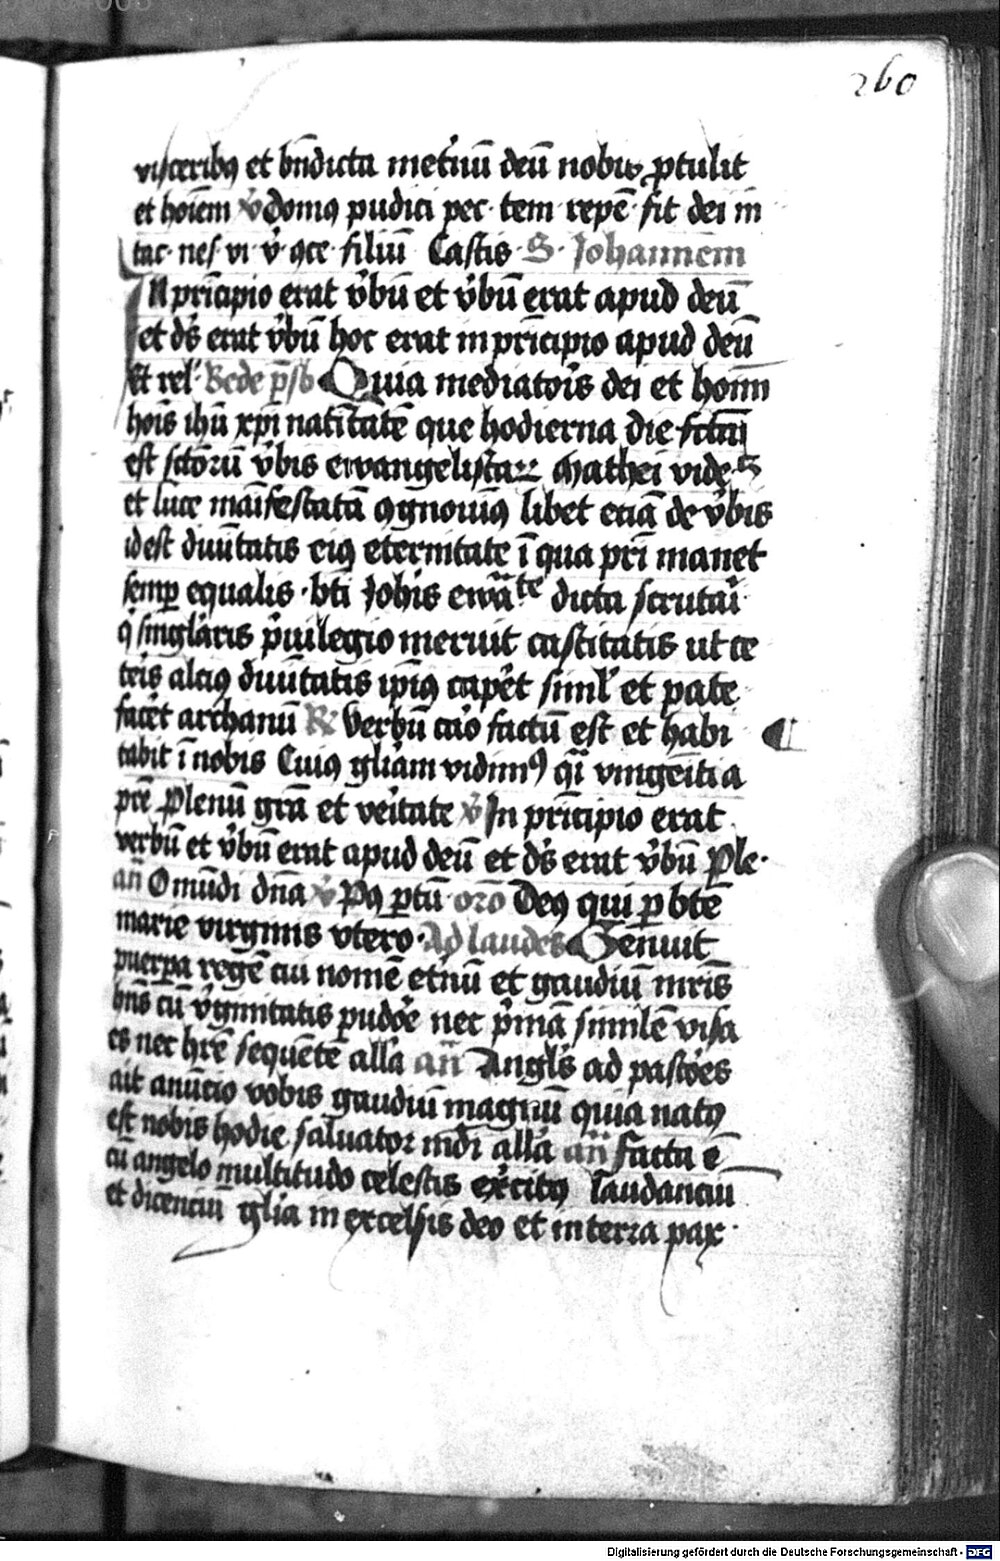 260
visceribꝯ et bn̄dicta met̾nū deū nobis ꝓtulit
et hoīem v̾ domꝯ pudici pec· tem· repē· fit dei in
tac· nes· vi· v̾· ꝯce· filiū Castis· S· Johannem
IN pⁱncipio erat v̾bū et v̾bū erat apud deū
et ds̄ erat v̾bū hoc erat in pⁱncipio apud deū
Et rel̾ Bede p̄sb Quia mediatoris dei et hoīm
hoīs ihū xpī natⁱtatē que hodierna die fctā
est sctōrū v̾bis ewangelistaꝝ Mathei vide·
et luce maīfestatā ꝯgnouimꝯ libet etiā de v̾bis
idest diuītatis eiꝯ eternitate ī qua prī manet
semꝑ equalis· bti Johīs ewāᵗᵉ dicta scrutari
ꝙ sing̾laris pⁱuilegio meruit castitatis ut ce
teis alciꝯ diuītatis ipīꝯ cap̾et siml̾ et pate
facēt archanū R̾ Verbū caro factū est et habi
tabit ī nobis Cuiꝯ gl̾iam vidimꝯ qⁱ vnigeīti a
prē Plenū grā et veritate v̾ In pⁱncipio erat
verbū et v̾bū erat apud deū et ds̄ erat v̾bū Ple·
an̄ O mūdi dn̄a v̾ Pꝯ ꝑtū· oro Deꝯ qui ꝑ btē
marie virginis vtero· Ad laudes Genuit
puerpa regē cui nomē et̾nū et gaudiū mris̄
hn̄s cū v̾ginitatis pudōe nec pⁱmā similē visa
es nec hrē sequētē all̾a an̄ Angl̾s ad pastōes
ait anūcio vobis gaudiū magnū quia natꝯ
est nobis hodie saluator mūdi all̾a an̄ Facta ē
cū angelo multitudo celestis ex̾citꝯ laudanciū
et dicenciū gl̾ia in excelsis deo et in terra pax·
Digitalisierung gefördert durch die Deutsche Forschungsgemeinschaft - DFG